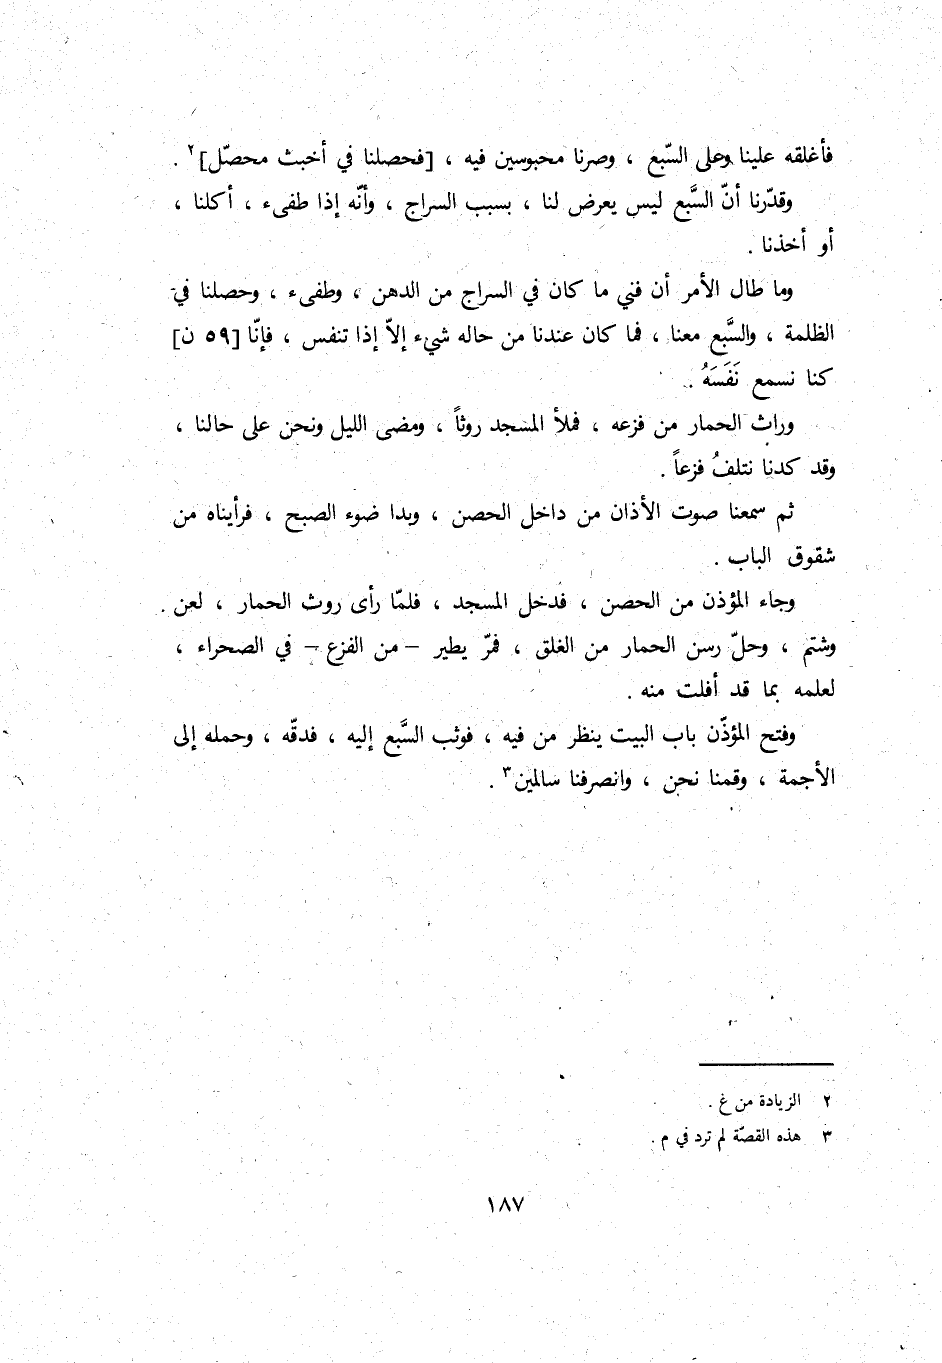 فأغلقه علينا وعلى السّبع ، وصرنا محبوسين فيه ، [فحصلنا في أخبث محصّل]٢ .
وقدّرنا أنّ السَّبع ليس يعرض لنا ، بسبب السراج ، وأنّه إذا طفىء ، أكلنا ،
أو أخذنا .
وما طال الأمر أن فني ما كان في السراج من الدهن ، وطفىء ، وحصلنا في
الظلمة ، والسَّبع معنا ، فما كان عندنا من حاله شيء إلاّ إذا تنفس ، فإنّا [٥٩ ن]
كنا نسمع نَفَسَهُ .
وراث الحمار من فزعه ، فملأ المسجد روثاً ، ومضى الليل ونحن على حالنا ،
وقد كدنا نتلفُ فزعاً .
ثم سمعنا صوت الأذان من داخل الحصن ، وبدا ضوء الصبح ، فرأيناه من
شقوق الباب .
وجاء المؤذن من الحصن ، فدخل المسجد ، فلمّا رأى روث الحمار ، لعن
وشتم ، وحلّ رسن الحمار من الغلق ، فمرّ يطير – من الفزع – في الصحراء ،
لعلمه بما قد أفلت منه .
وفتح المؤذّن باب البيت ينظر من فيه ، فوثب السَّبع إليه ، فدقّه ، وحمله إلى
الأجمة ، وقمنا نحن ، وانصرفنا سالمين٣ .
٢ الزيادة من غ .
٣ هذه القصّة لم ترد في م .
١٨٧